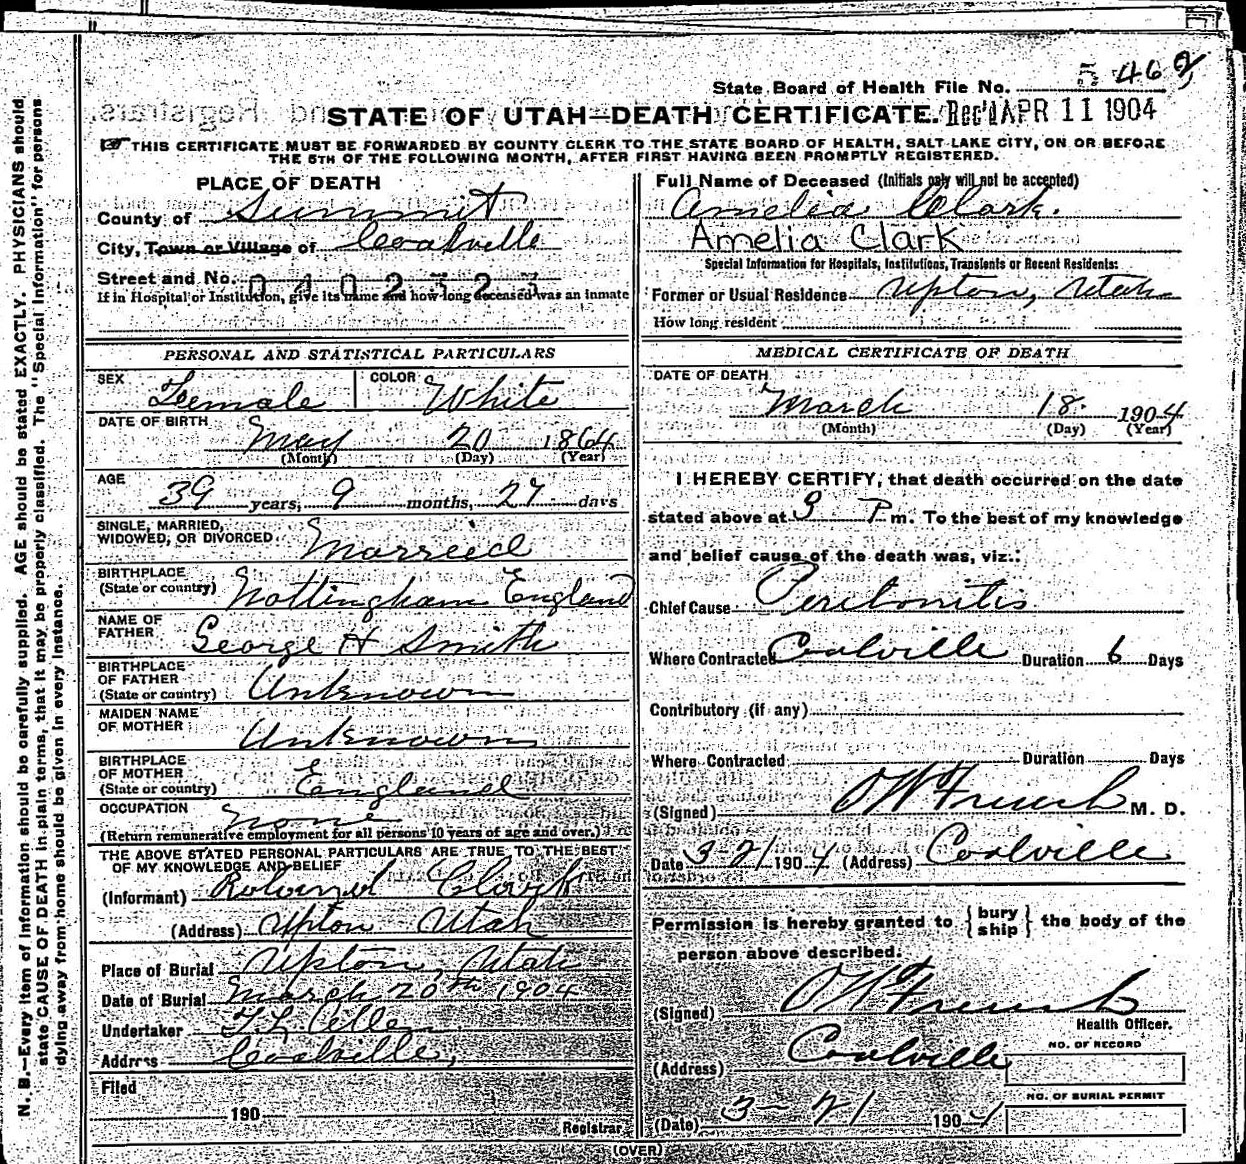 State Board of Health File No. 5 462
STATE OF UTAH—DEATH CERTIFICATE. Rec'd APR 11 1904
THIS CERTIFICATE MUST BE FORWARDED BY COUNTY CLERK TO THE STATE BOARD OF HEALTH, SALT LAKE CITY, ON OR BEFORE
THE 5TH OF THE FOLLOWING MONTH, AFTER FIRST HAVING BEEN PROMPTLY REGISTERED.
PLACE OF DEATH
County of Summit
City, Town or Village of Coalville
Street and No. 0402323
If in Hospital or Institution, give its name and how long deceased was an inmate
Full Name of Deceased (Initials only will not be accepted)
Amelia Clark.
Amelia Clark
Special Information for Hospitals, Institutions, Transients or Recent Residents:
Former or Usual Residence Upton, Utah
How long resident
PERSONAL AND STATISTICAL PARTICULARS
SEX Female COLOR White
DATE OF BIRTH
May 20 1864
(Month) (Day) (Year)
AGE
39 years, 9 months, 27 days
SINGLE, MARRIED,
WIDOWED, OR DIVORCED Married
BIRTHPLACE
(State or country) Nottingham England
NAME OF
FATHER George H Smith
BIRTHPLACE
OF FATHER
(State or country) Unknown
MAIDEN NAME
OF MOTHER Unknown
BIRTHPLACE
OF MOTHER
(State or country) England
OCCUPATION None
(Return remunerative employment for all persons 10 years of age and over.)
THE ABOVE STATED PERSONAL PARTICULARS ARE TRUE TO THE BEST
OF MY KNOWLEDGE AND BELIEF
(Informant) Clark
(Address) Upton Utah
Place of Burial Upton, Utah
Date of Burial March 20th 1904
Undertaker
Address Coalville,
Filed
190
Registrar
MEDICAL CERTIFICATE OF DEATH
DATE OF DEATH
March 18. 1904
(Month) (Day) (Year)
I HEREBY CERTIFY, that death occurred on the date
stated above at P. m. To the best of my knowledge
and belief cause of the death was, viz.:
Chief Cause Peritonitis
Where Contracted Coalville Duration 6 Days
Contributory (if any)
Where Contracted Duration Days
(Signed) M. D.
Date 3-21 1904 (Address) Coalville
Permission is hereby granted to {bury ship} the body of the
person above described.
(Signed)
Health Officer.
(Address) Coalville
NO. OF RECORD
NO. OF BURIAL PERMIT
(Date) 3-21 1904
(OVER)
N. B.—Every item of information should be carefully supplied. AGE should be stated EXACTLY. PHYSICIANS should
state CAUSE OF DEATH in plain terms, that it may be properly classified. The "Special Information" for persons
dying away from home should be given in every instance.